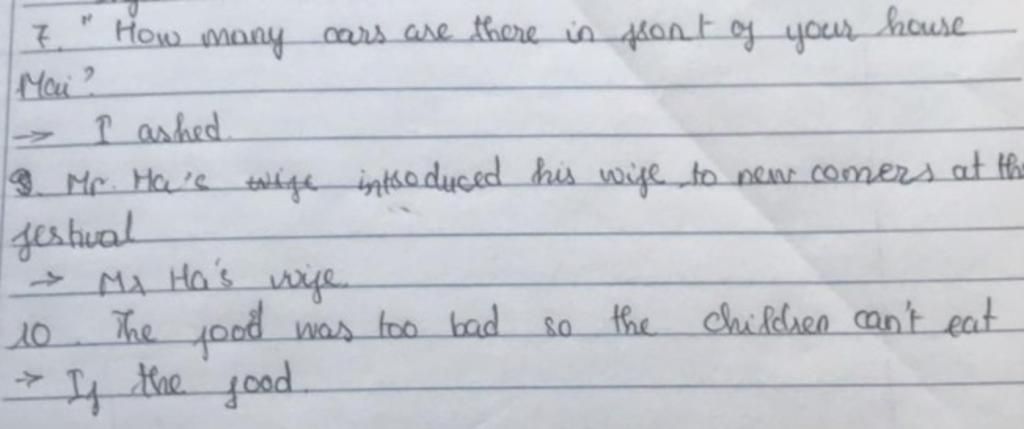 7. " How many cars are there in front of your house
Mai?
→ I asked.
9. Mr. Ha's wife introduced his wife to new comers at the
festival
→ Mr Ha's wife.
10. The food was too bad so the children can't eat
→ If the food.